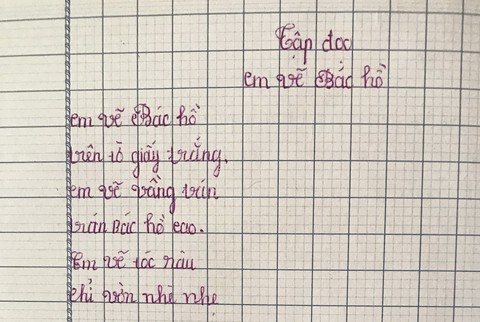 Tập đọc
em vẽ Bác hồ
em vẽ Bác hồ
trên tờ giấy trắng.
em vẽ vầng trán
trán Bác hồ cao.
Em vẽ tóc râu
chỉ vờn nhè nhẹ